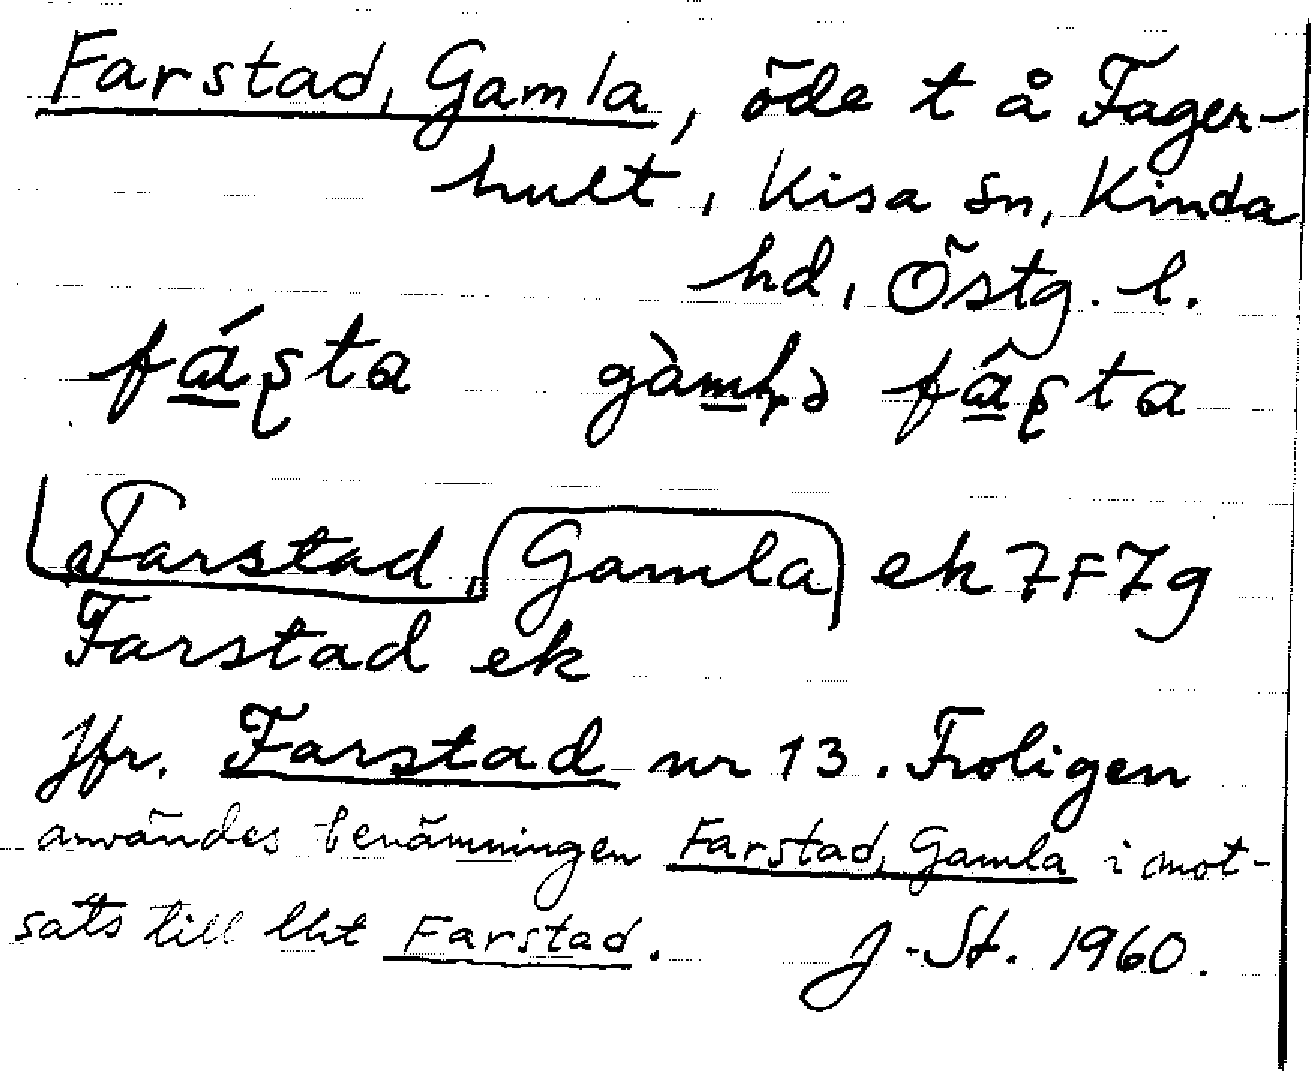 Farstad, Gamla, öde t å Fager-
hult, Kisa sn, Kinda
hd, Östg. l.
fá̱ʂta gàm̱ḷə fâ̱ʂta
Farstad, Gamla ek 7F7g
Farstad ek
Jfr. Farstad nr 13. Troligen
användes benämningen Farstad, Gamla i mot-
sats till lht Farstad. J. St. 1960.